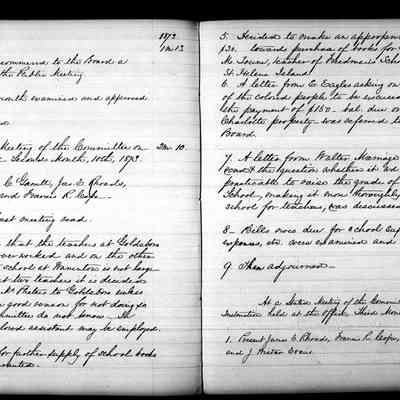 1873
1 Mo 13
commend to the Board a
the Public Meeting
month examined and approved
Meeting of the Committee on
2 Mo 10.
Second Month, 10th, 1873.
C. Garrett, Jas. E. Rhoads,
and Francis R. Cope.
last meeting read.
that the teachers at Goldsboro
over worked and on the other
school at Warrenton is not large
two teachers it is decided
to Goldsboro unless
good reason for not doing so
committee do not know. In
colored assistant may be employed.
for further supply of school books
5. Decided to make an appropriation
$30. towards purchase of books for
M. Towne, teacher of Freedmen's School
St. Helena Island.
6. A letter from C. Eagles asking on
of the colored people to be excused
the payment of $150 bal. due on
Charlotte property was referred to
Board.
7. A letter from Walter
the question whether it wd
practicable to raise the grade of
School, making it more thoroughly
school for teachers, was discussed
8 - Bills were due for school
expenses, etc. were examined and
9. Then adjourned.
At a Stated Meeting of the Committee
Instruction held at the Office Third Mon
1. Present James E. Rhoads, Francis R. Cope,
and J. Wistar Evans.